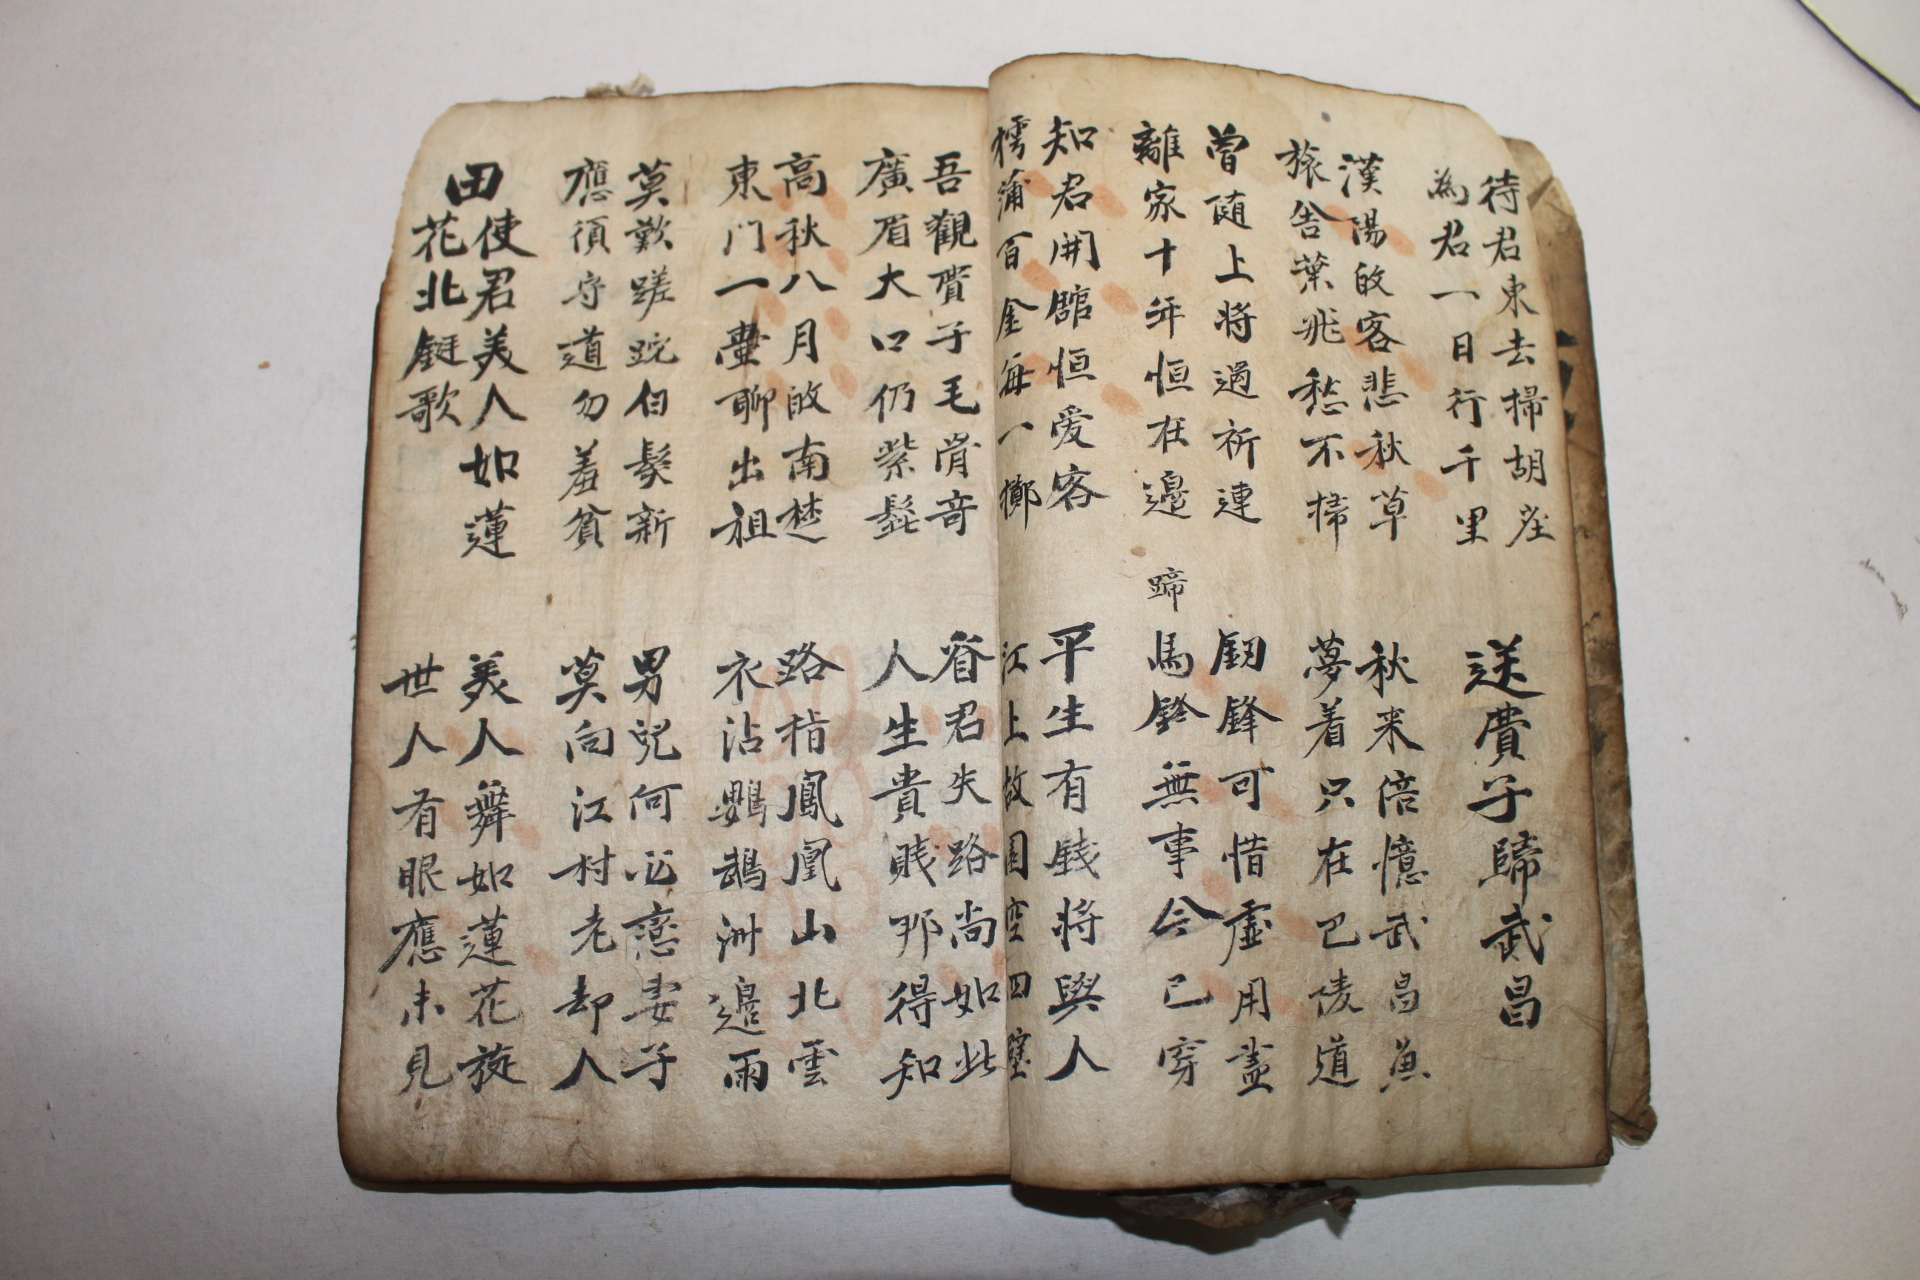 待君東去掃胡塵
為君一日行千里
送費子歸武昌
漢陽敀客悲秋草
旅舍葉飛愁不掃
秋来倍憶武昌魚
夢着只在巴陵道
曾随上將過祈連
離家十年恒在邊
釼鋒可惜虛用盡
蹄
馬鈴無事今已穿
知君開館恒愛客
樗蒲百金每一擲
平生有錢將與人
江上故園空四壁
吾觀費子毛骨竒
廣眉大口仍紫髭
看君失路尚如此
人生貴賤那得知
高秋八月敀南楚
東門一壷聊出祖
路指鳳凰山北雲
衣沾鸚鵡洲邊雨
莫歎蹉跎白髮新
應須守道勿羞貧
男兒何必戀妻子
莫向江村老却人
田使君美人如蓮
花北鋋歌
美人舞如蓮花旋
世人有眼應未見